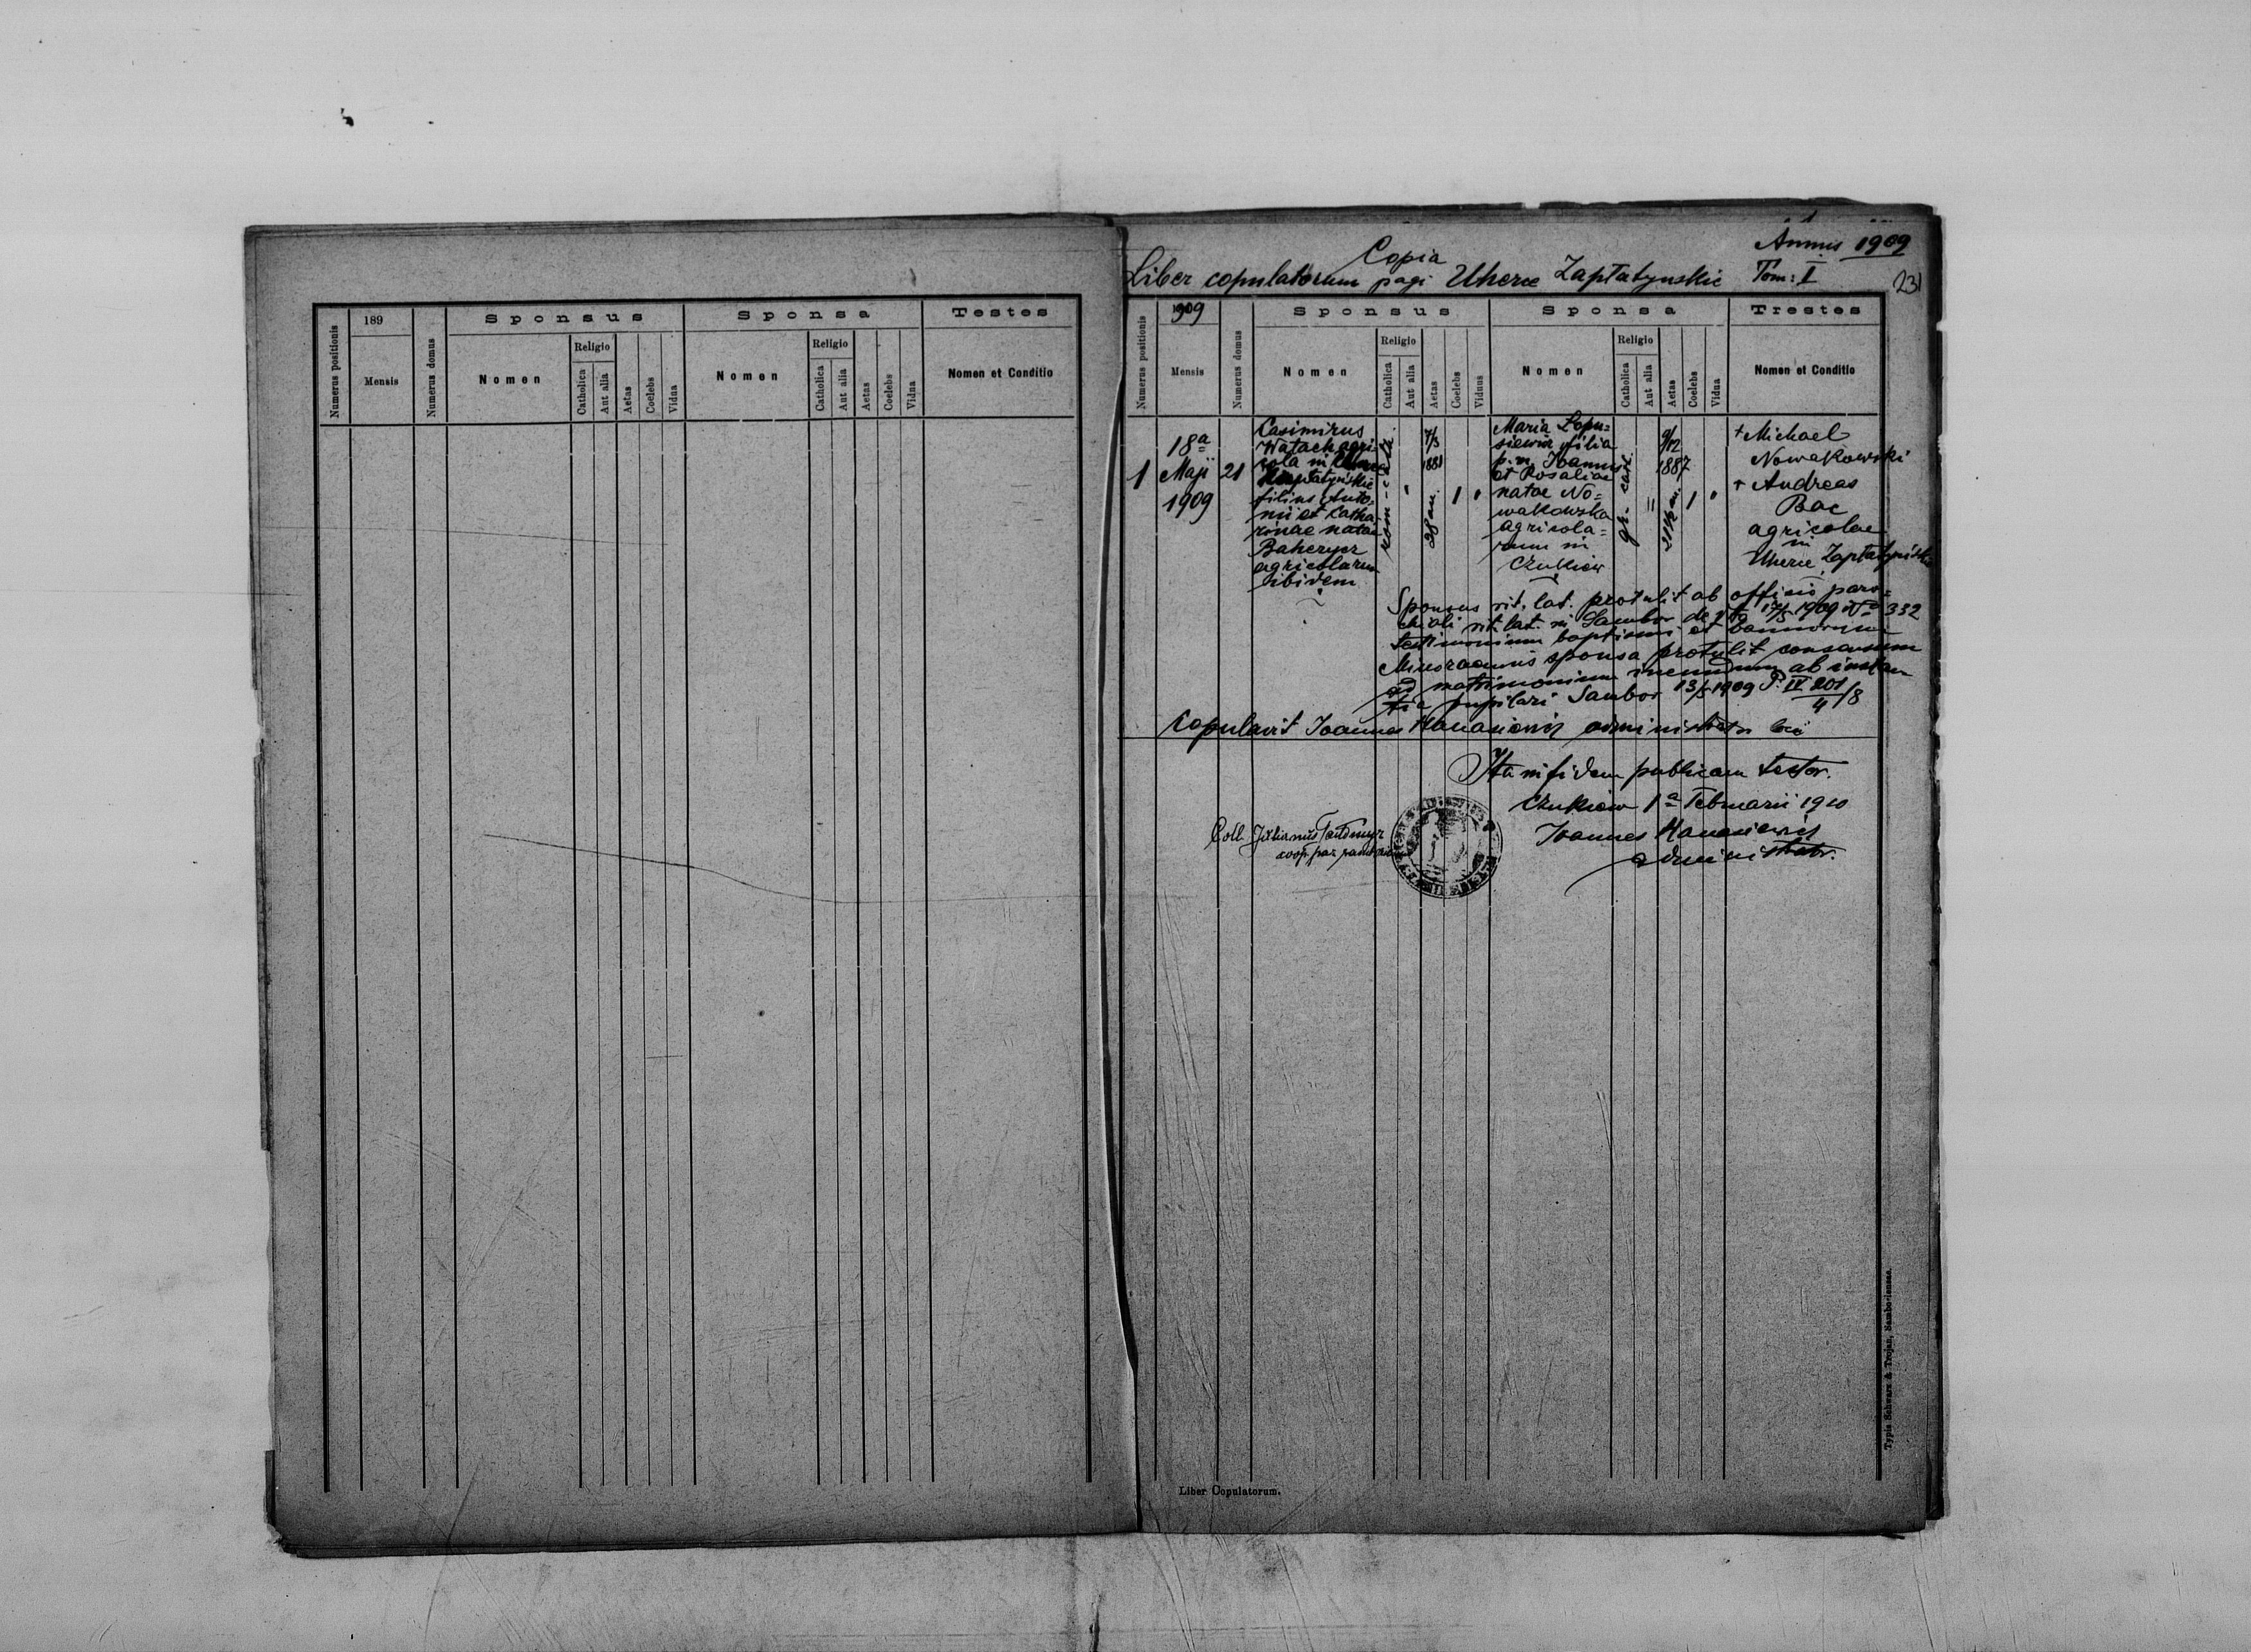 189
Numerus positionis
Mensis
Numerus domus
Sponsus
Nomen
Religio
Catholica
Aut alia
Aetas
Coelebs
Vidua
Sponsa
Nomen
Religio
Catholica
Aut alia
Aetas
Coelebs
Vidua
Testes
Nomen et Conditio
Annus 1909
Copia
Liber copulatorum pagi Uherce Zapłatynskie Tom: I
231
1909
Numerus positionis
Mensis
Numerus domus
Sponsus
Nomen
Religio
Catholica
Aut alia
Aetas
Coelebs
Viduus
Sponsa
Nomen
Religio
Catholica
Aut alia
Aetas
Coelebs
Vidua
Trestes
Nomen et Conditio
1
18ª
Maji
1909
21
Casimirus
Watach agri-
cola in
Zapłatyńskie
filius Anto-
nii et Catha-
rinae natae
Baherycz
agricolarum
ibidem
7/3
1881
28 an.
1
Maria Łopu-
siewicz filia
p. m. Joannis
et Rosaliae
natae No=
wakowska
agricola=
rum in
Czukiew
gr. cat.
9/12
1887
21 1/2 an.
1
+ Michael
Nowakowski
+ Andreas
Bac
agricolae
in
Uherce Zapłatyńskie
Sponsus rit. lat. protulit ab officio paro-
chiali rit. lat. in Sambor de dto 17/5 1909 Nº 332
testimonium baptismi et bannorum
Minorennis sponsa protulit consensum
ad matrimonium ineundum ab instan
tia pupilari Sambor 13/5 1909 P. IV 201/4 /8
Copulavit Joannes Hanasiewicz administrator loci
Ita in fidem publicam testor.
Czukiew 1ª Februarii 1910
Joannes Hanasiewicz
administrator.
Coll. Julianus
Liber Copulatorum.
Typis Schwarz & Trojan, Samboriensae.